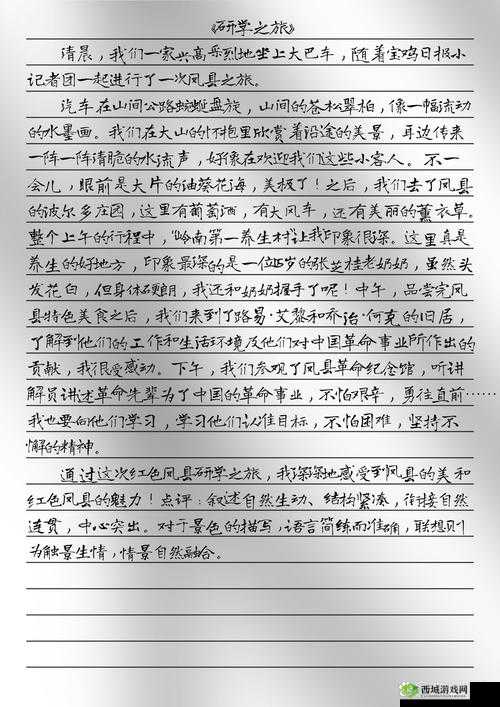 《研学之旅》
清晨，我们一家兴高采烈地坐上大巴车，随着宝鸡日报小
记者团一起进行了一次凤县之旅。
汽车在山间公路蜿蜒盘旋，山间的苍松翠柏，像一幅流动
的水墨画。我们在大山的怀抱里欣赏着沿途的美景，耳边传来
一阵一阵清脆的水流声，好像在欢迎我们这些小客人。不一
会儿，眼前是大片的油葵花海，美极了！之后，我们去了凤县
的波尔多庄园，这里有葡萄酒，有大风车，还有美丽的薰衣草。
整个上午的行程中，“岭南第一养生村”让我印象很深。这里真是
养生的好地方，印象最深的是一位岁的张芝桂老奶奶，虽然头
发花白，但身体硬朗，我还和奶奶握手了呢！中午，品尝完凤
县特色美食之后，我们来到了路易·艾黎和乔治·何克的旧居，
了解到他们的工作和生活环境及他们对中国革命事业所作出的
贡献，我很受感动。下午，我们参观了凤县革命纪念馆，听讲
解员讲述革命先辈为了中国的革命事业，不怕艰辛，勇往直前……
我也要向他们学习，学习他们认准目标，不怕困难，坚持不
懈的精神。
通过这次红色凤县研学之旅，我深深地感受到凤县的美和
红色凤县的魅力！点评：叙述自然生动、结构紧凑，衔接自然
连贯，中心突出。对于景色的描写，语言简练而准确，联想则
为触景生情，情景自然融合。
西城游戏网